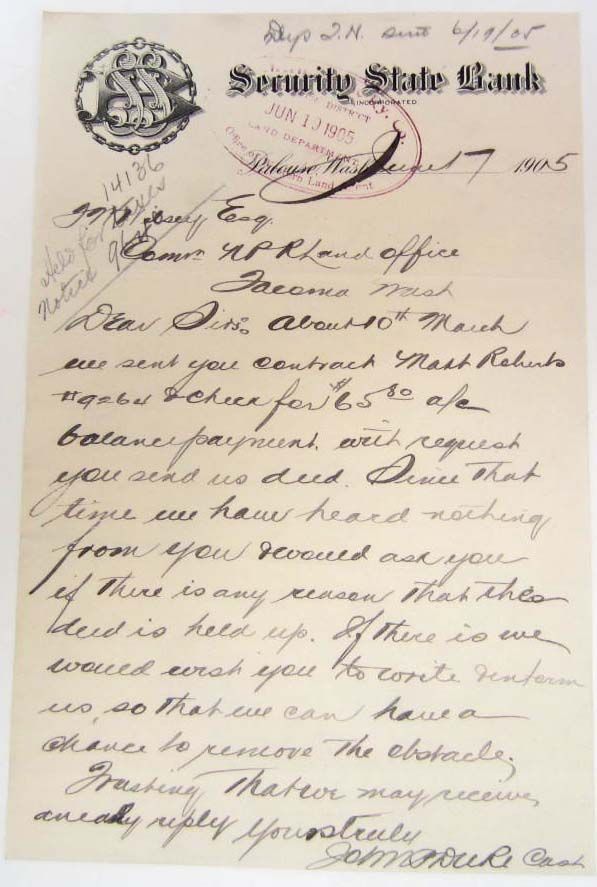 Dup T.N. sent 6/19/05
Security State Bank
INCORPORATED
JUN 19 1905
LAND DEPARTMENT
Palouse, Wash. June 17 1905
14136
Held for
Notice
Esq.
Comr N P R Land office
Tacoma Wash
Dear Sirs: About 10th March
we sent you contract Matt Roberts
#9264 & check for $65 80 a/c
balance payment with request
you send us deed. Since that
time we have heard nothing
from you & would ask you
if there is any reason that this
deed is held up. If there is we
would wish you to write & inform
us, so that we can have a
chance to remove the obstacle.
Trusting that we may receive
an early reply Yours truly
Cash